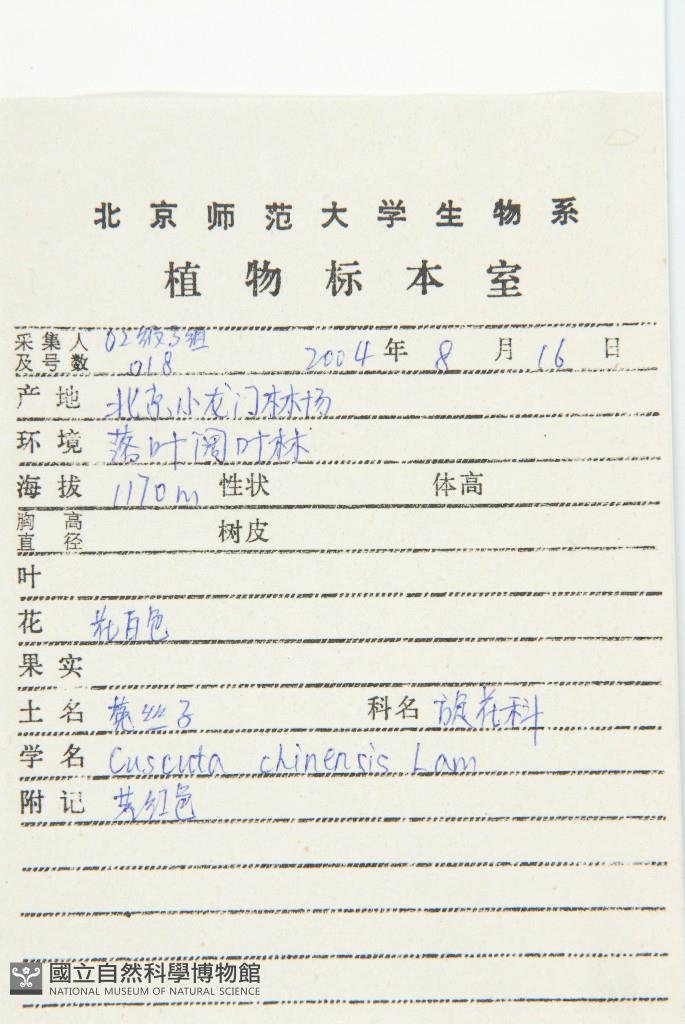 北京师范大学生物系
植物标本室
采集人及号数 02级3组 018 2004年8月16日
产地 北京小龙门林场
环境 落叶阔叶林
海拔 1170m 性状 体高
胸高直径 树皮
叶
花 花白色
果实
土名 菟丝子 科名 旋花科
学名 Cuscuta chinensis Lam
附记 茎红色
國立自然科學博物館
NATIONAL MUSEUM OF NATURAL SCIENCE